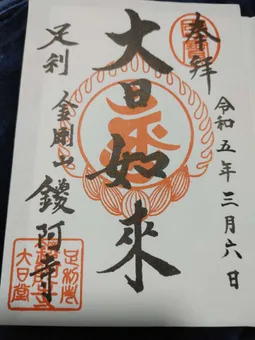 奉拝
令和五年三月六日
大日如来
足利
金剛山
鑁阿寺
足利市
大日堂